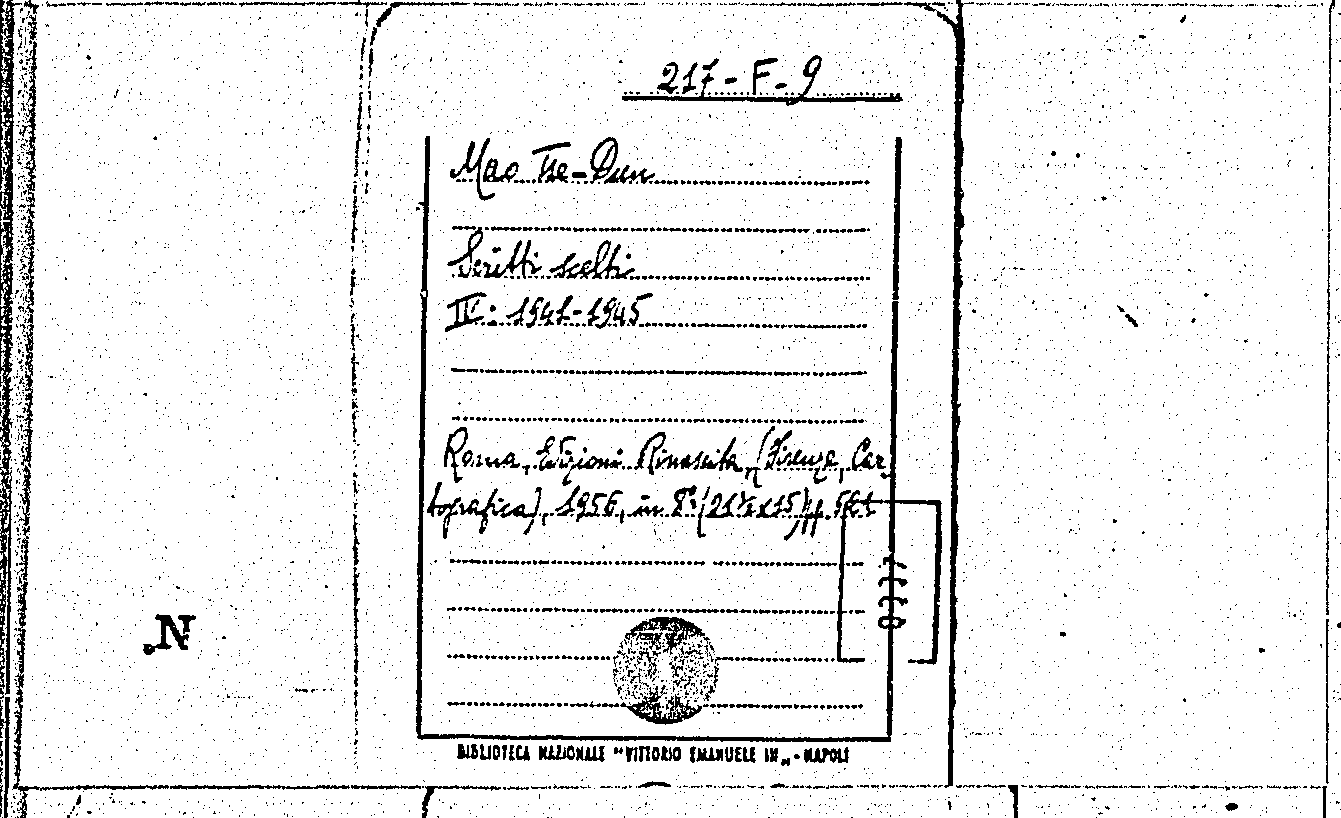 217-F-9
Mao Tse-Dun
Scritti scelti
IV: 1941-1945
Roma, Edizioni Rinascita, (Firenze, Car
tografica), 1956, in 8º (21½x15) pp.
BIBLIOTECA NAZIONALE "VITTORIO EMANUELE III„ - NAPOLI
N.